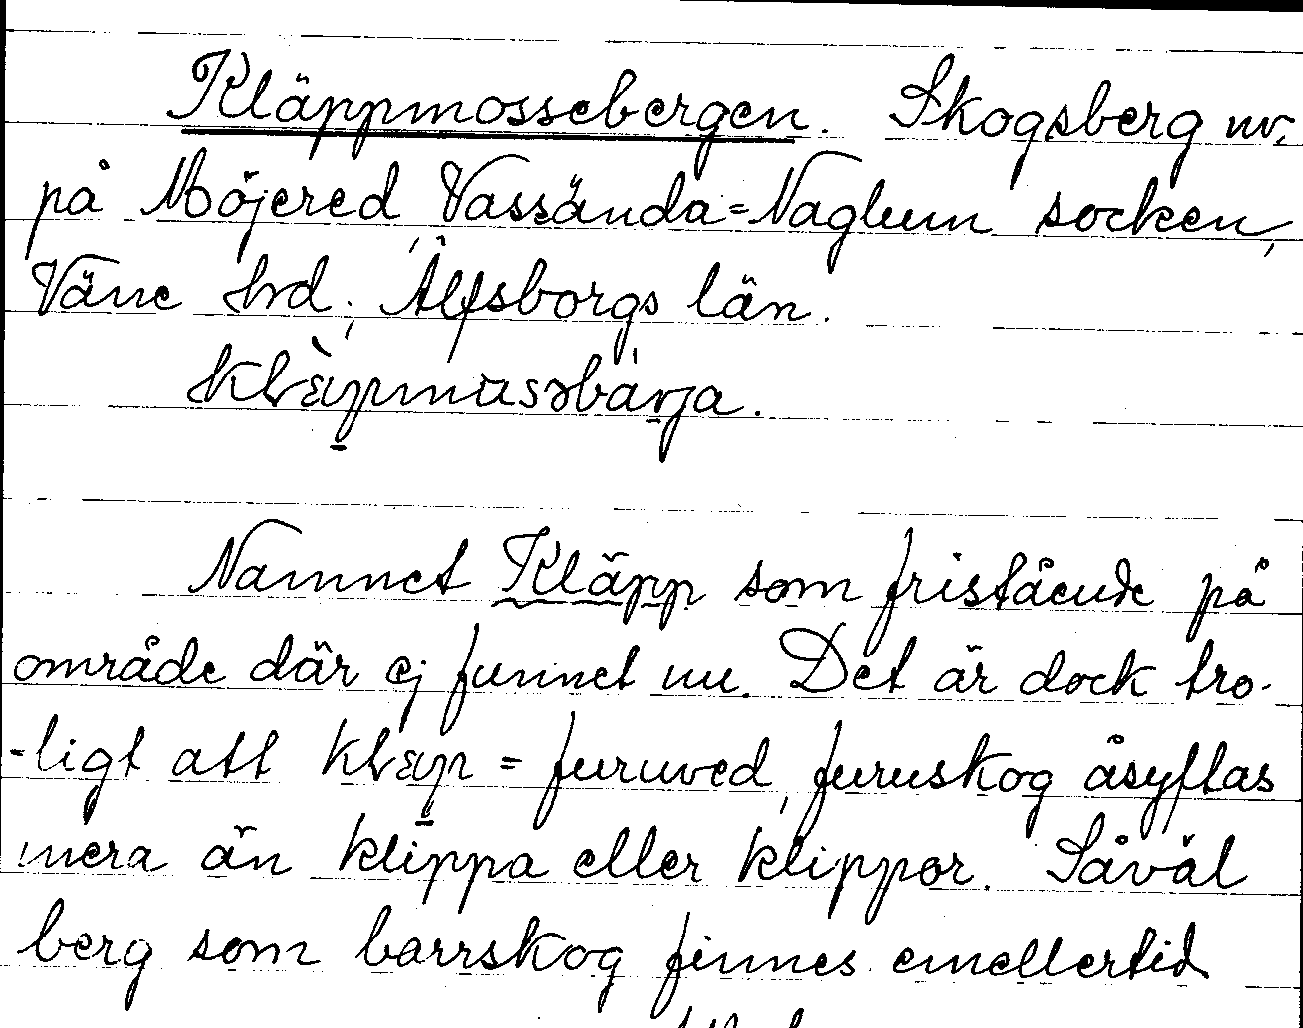 Kläppmossebergen. Skogsberg nv.
på Möjered Vassända=Naglum socken,
Väne hrd; Älfsborgs län.
Namnet Kläpp som fristående på
område där ej funnet nu. Det är dock tro-
-ligt att = furuved, furuskog åsyftas
mera än klippa eller klippor. Såväl
berg som barrskog finnes emellertid